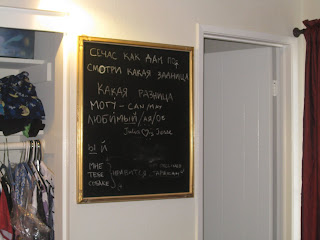 СЕЧАС КАК ДАМ ПО
СМОТРИ КАКАЯ ЗАДНИЦА
КАКАЯ РАЗНИЦА
МОГУ - CAN/MAY
ЛЮБИМЫЙ/АЯ/ОЕ
Julius ♡s Jesse
Ы Й
МНЕ
ТЕБЕ НРАВИТСЯ
СОБАКЕ